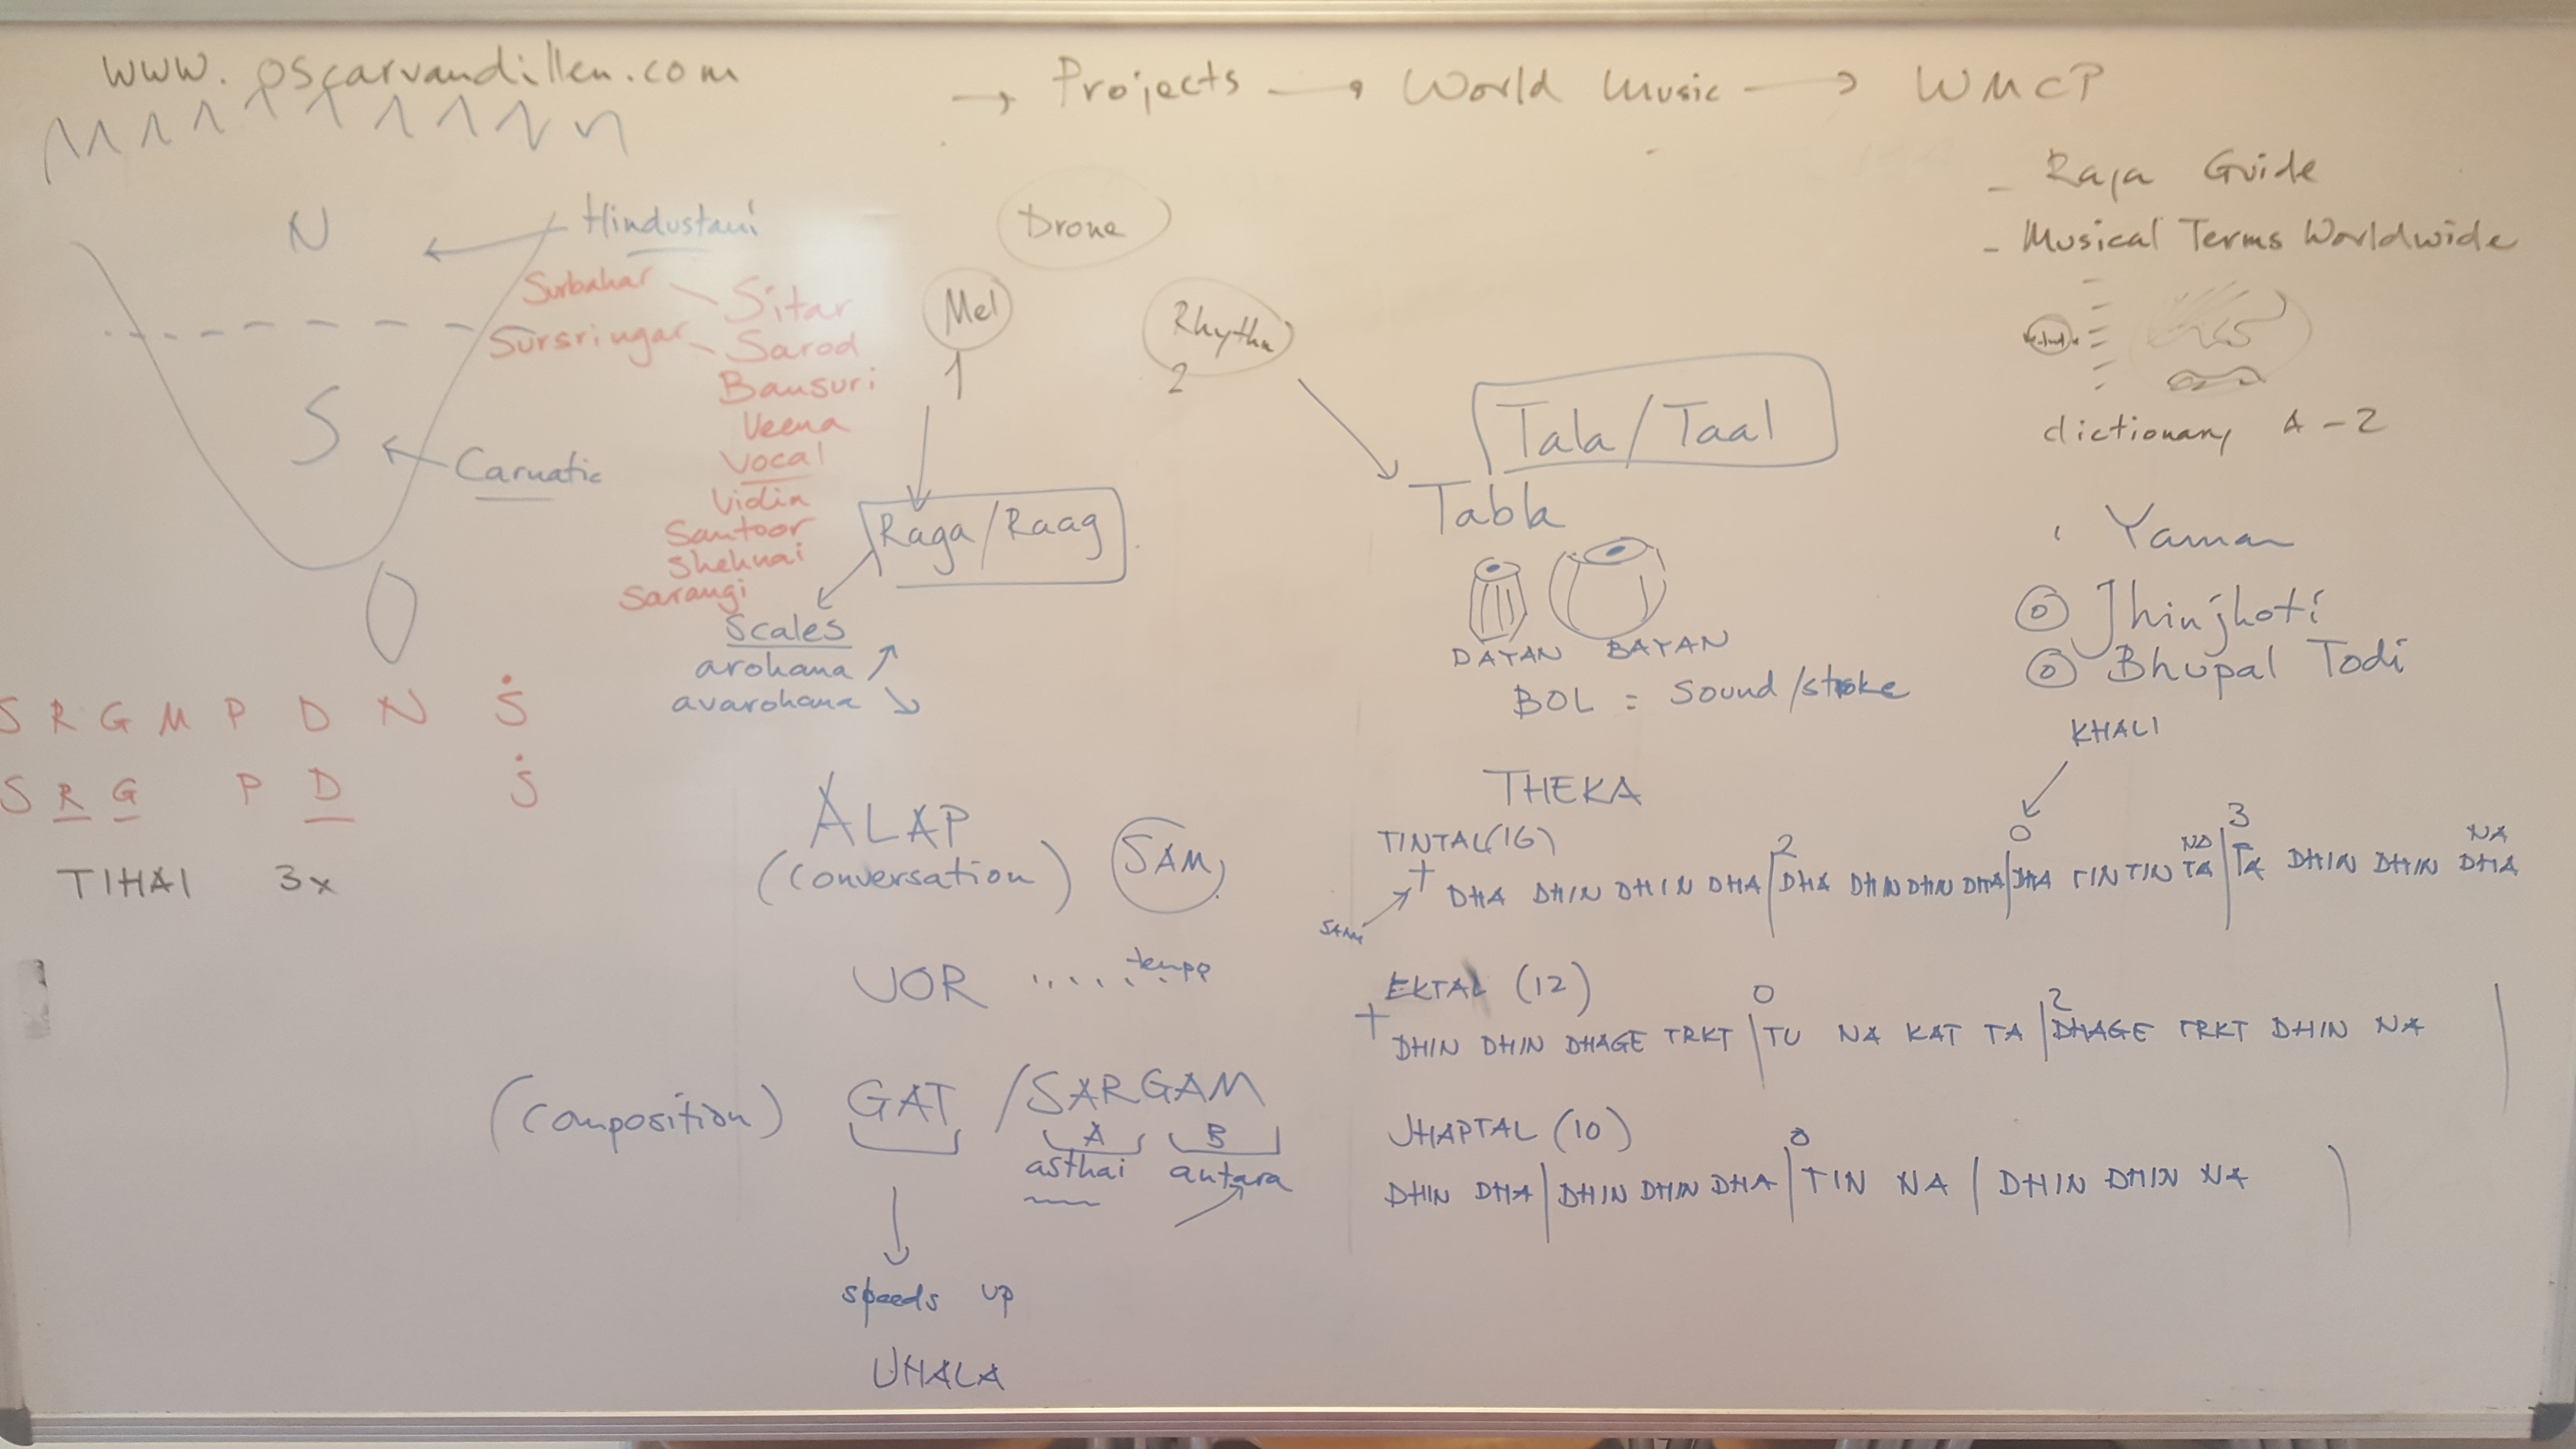 www.oscarvandillen.com → Projects → World Music → WMCP
- Raga Guide
- Musical Terms Worldwide
dictionary A-Z
N
Hindustani
S
Carnatic
Surbahar
Sursringar
Sitar
Sarod
Bansuri
Veena
Vocal
Violin
Santoor
Shehnai
Sarangi
Drone
Mel
1
Rhythm
2
Raga/Raag
Scales
arohana ↗
avarohana ↘
Tala/Taal
Tabla
DAYAN BAYAN
BOL = Sound/stroke
Yaman
Jhinjhoti
Bhupal Todi
S R G M P D N Ṡ
S R G P D Ṡ
TIHAI 3x
ALAP
(conversation)
SAM
JOR ..... tempo
(composition) GAT / SARGAM
A B
asthai antara
speeds up
JHALA
THEKA
KHALI
TINTAL (16)
2 0 3
NA NA
+ DHA DHIN DHIN DHA | DHA DHIN DHIN DHA | DHA TIN TIN TA | TA DHIN DHIN DHA
SAM
EKTAL (12)
0 2
+ DHIN DHIN DHAGE TRKT | TU NA KAT TA | DHAGE TRKT DHIN NA |
JHAPTAL (10)
0
DHIN DHA | DHIN DHIN DHA | TIN NA | DHIN DHIN NA |